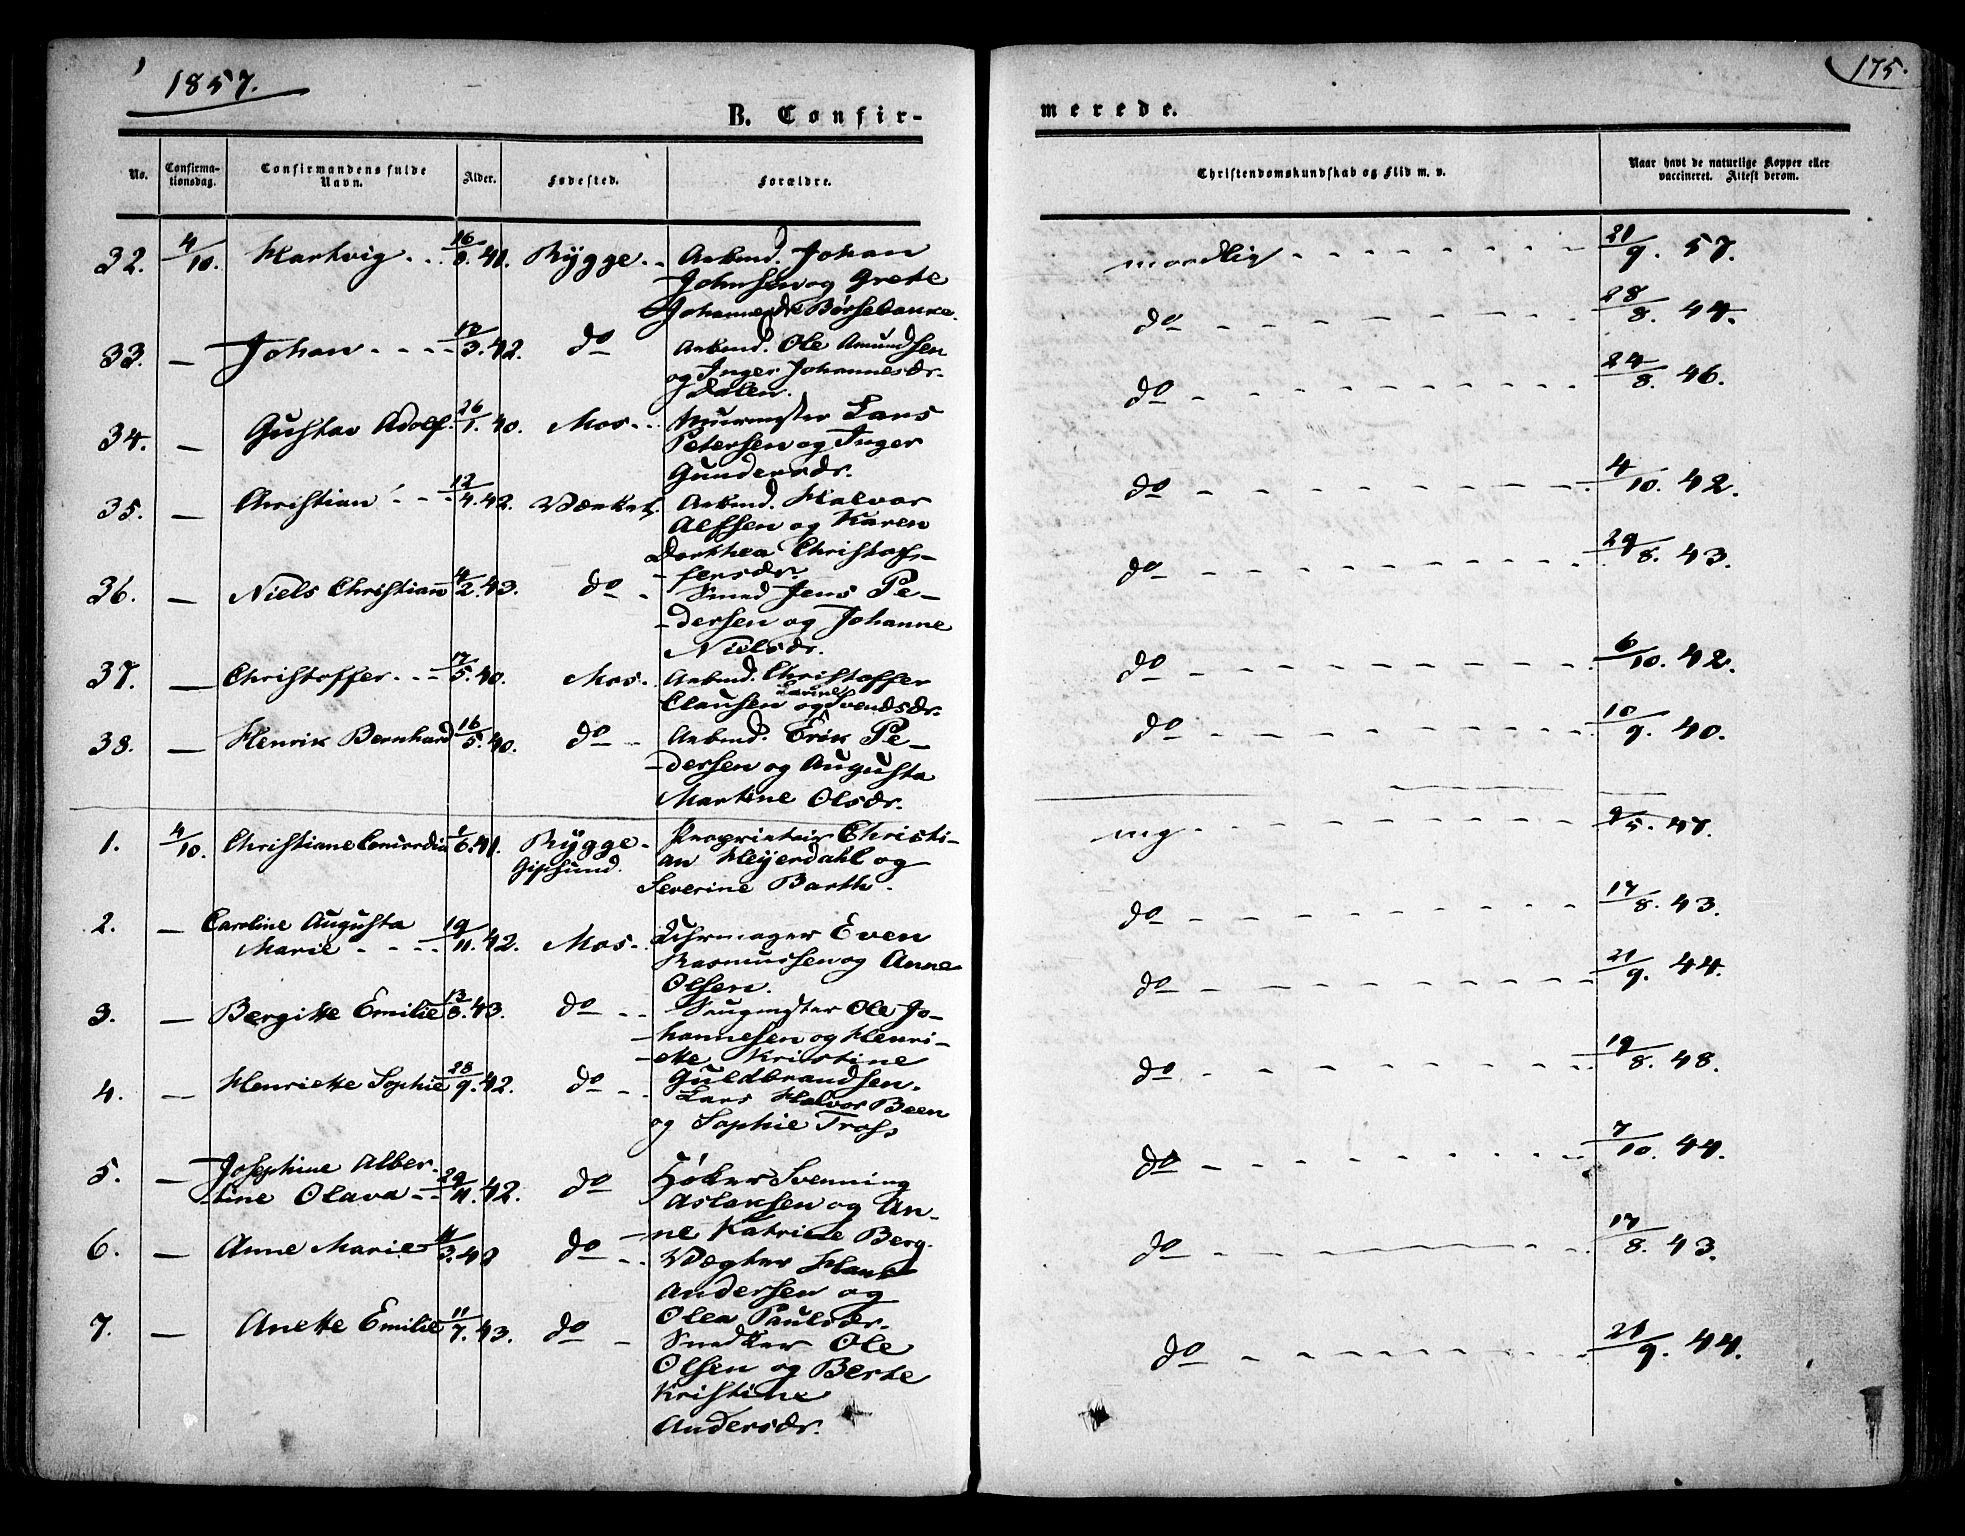 1857.
175.
B. Confir-
merede.
No.
Confirma-
tionsdag.
Confirmandens fulde
Navn.
Alder.
Fødested.
Forældre.
Christendomskundskab og Flid m. v.
Naar havt de naturlige Kopper eller
vaccineret. Attest derom.
32. 4/10. Hartvig 16/8. 41. Rygge Arbmd. Johan
Johnsen og Grete
Johannesdr Børsebakke.
mdlig 21/9. 57.
33. — Johan 12/3. 42. do Arbmd. Ole Amundsen
og Inger Johannesdr.
Dalen.
do 28/8. 44.
34. — Gustav Adolf. 26/1. 40. Mos Murmster Lars
Petersen og Inger
Gundersdr.
do 24/8. 46.
35. — Christian 12/4. 42. Værket. Arbmd. Halvor
Alfsen og Karen
Dorthea Christof-
fersdr.
do 4/10. 42.
36. — Niels Christian 4/2. 43. do Smed Jens Pe-
dersen og Johanne
Nielsdr.
do 29/8. 43.
37. — Christoffer 17/5. 40. Mos. Arbmd. Christoffer
Clausen og Svendsdr.
do 6/10. 42.
38. — Henrik Bernhard 16/5. 40. do Arbmd. Erik Pe-
dersen og Augusta
Martine Olsdr.
do 10/9. 40.
1. 4/10. Christiane Concordia 1/6. 41. Rygge Proprietair Christi-
Gipsund. an Heyerdahl og
Severine Barth.
mg 9/5. 47.
2. — Caroline Augusta
Marie 19/11. 42. Mos Uhrmager Even
Rasmussen og Anne
Olsen.
do 17/8. 43.
3. — Bergitte Emilie 13/8. 43. do Saugmster Ole Jo-
hannesen og Henri-
ette Kristine
Guldbrandsen.
do 21/9. 44.
4. — Henriette Sophie 28/9. 42. do Lars Halvor Been
og Sophie Tross
do 19/8. 48.
5. — Josephine Alber-
tine Olava 29/11. 42. do Høker Svenning
Aslaksen og An-
ne Katrine Berg.
do 7/10. 44.
6. — Anne Marie 11/3. 42 do Vægter Hans
Andersen og
Olea Paulsdr.
do 17/8. 43.
7. — Anette Emilie 11/7. 43. do Snedker Ole
Olsen og Berte
Kristine
Andersdr.
do 21/9. 44.